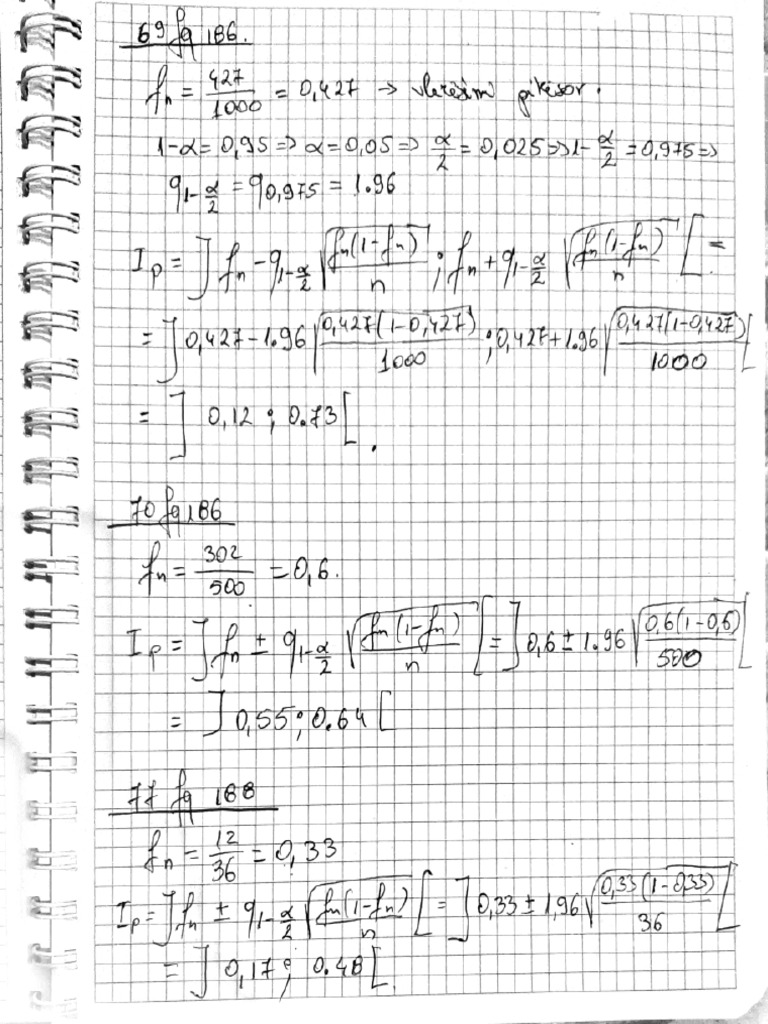 69 fq 186.
fn = 427/1000 = 0,427 → vlerësim pikësor.
1-α = 0,95 => α = 0,05 => α/2 = 0,025 => 1 - α/2 = 0,975 =>
q1-α/2 = q0,975 = 1.96
Ip = ]fn - q1-α/2 √(fn(1-fn)/n) ; fn + q1-α/2 √(fn(1-fn)/n)[ =
= ]0,427 - 1.96 √(0,427(1-0,427)/1000) ; 0,427 + 1.96 √(0,427(1-0,427)/1000)[
= ]0,12 ; 0.73[.
70 fq 186
fn = 302/500 = 0,6.
Ip = ]fn ± q1-α/2 √(fn(1-fn)/n)[ = ]0,6 ± 1.96 √(0,6(1-0,6)/500)[
= ]0,55 ; 0.64[
77 fq 188
fn = 12/36 = 0,33
Ip = ]fn ± q1-α/2 √(fn(1-fn)/n)[ = ]0,33 ± 1,96 √(0,33(1-0,33)/36)[
= ]0,17 ; 0.48[.